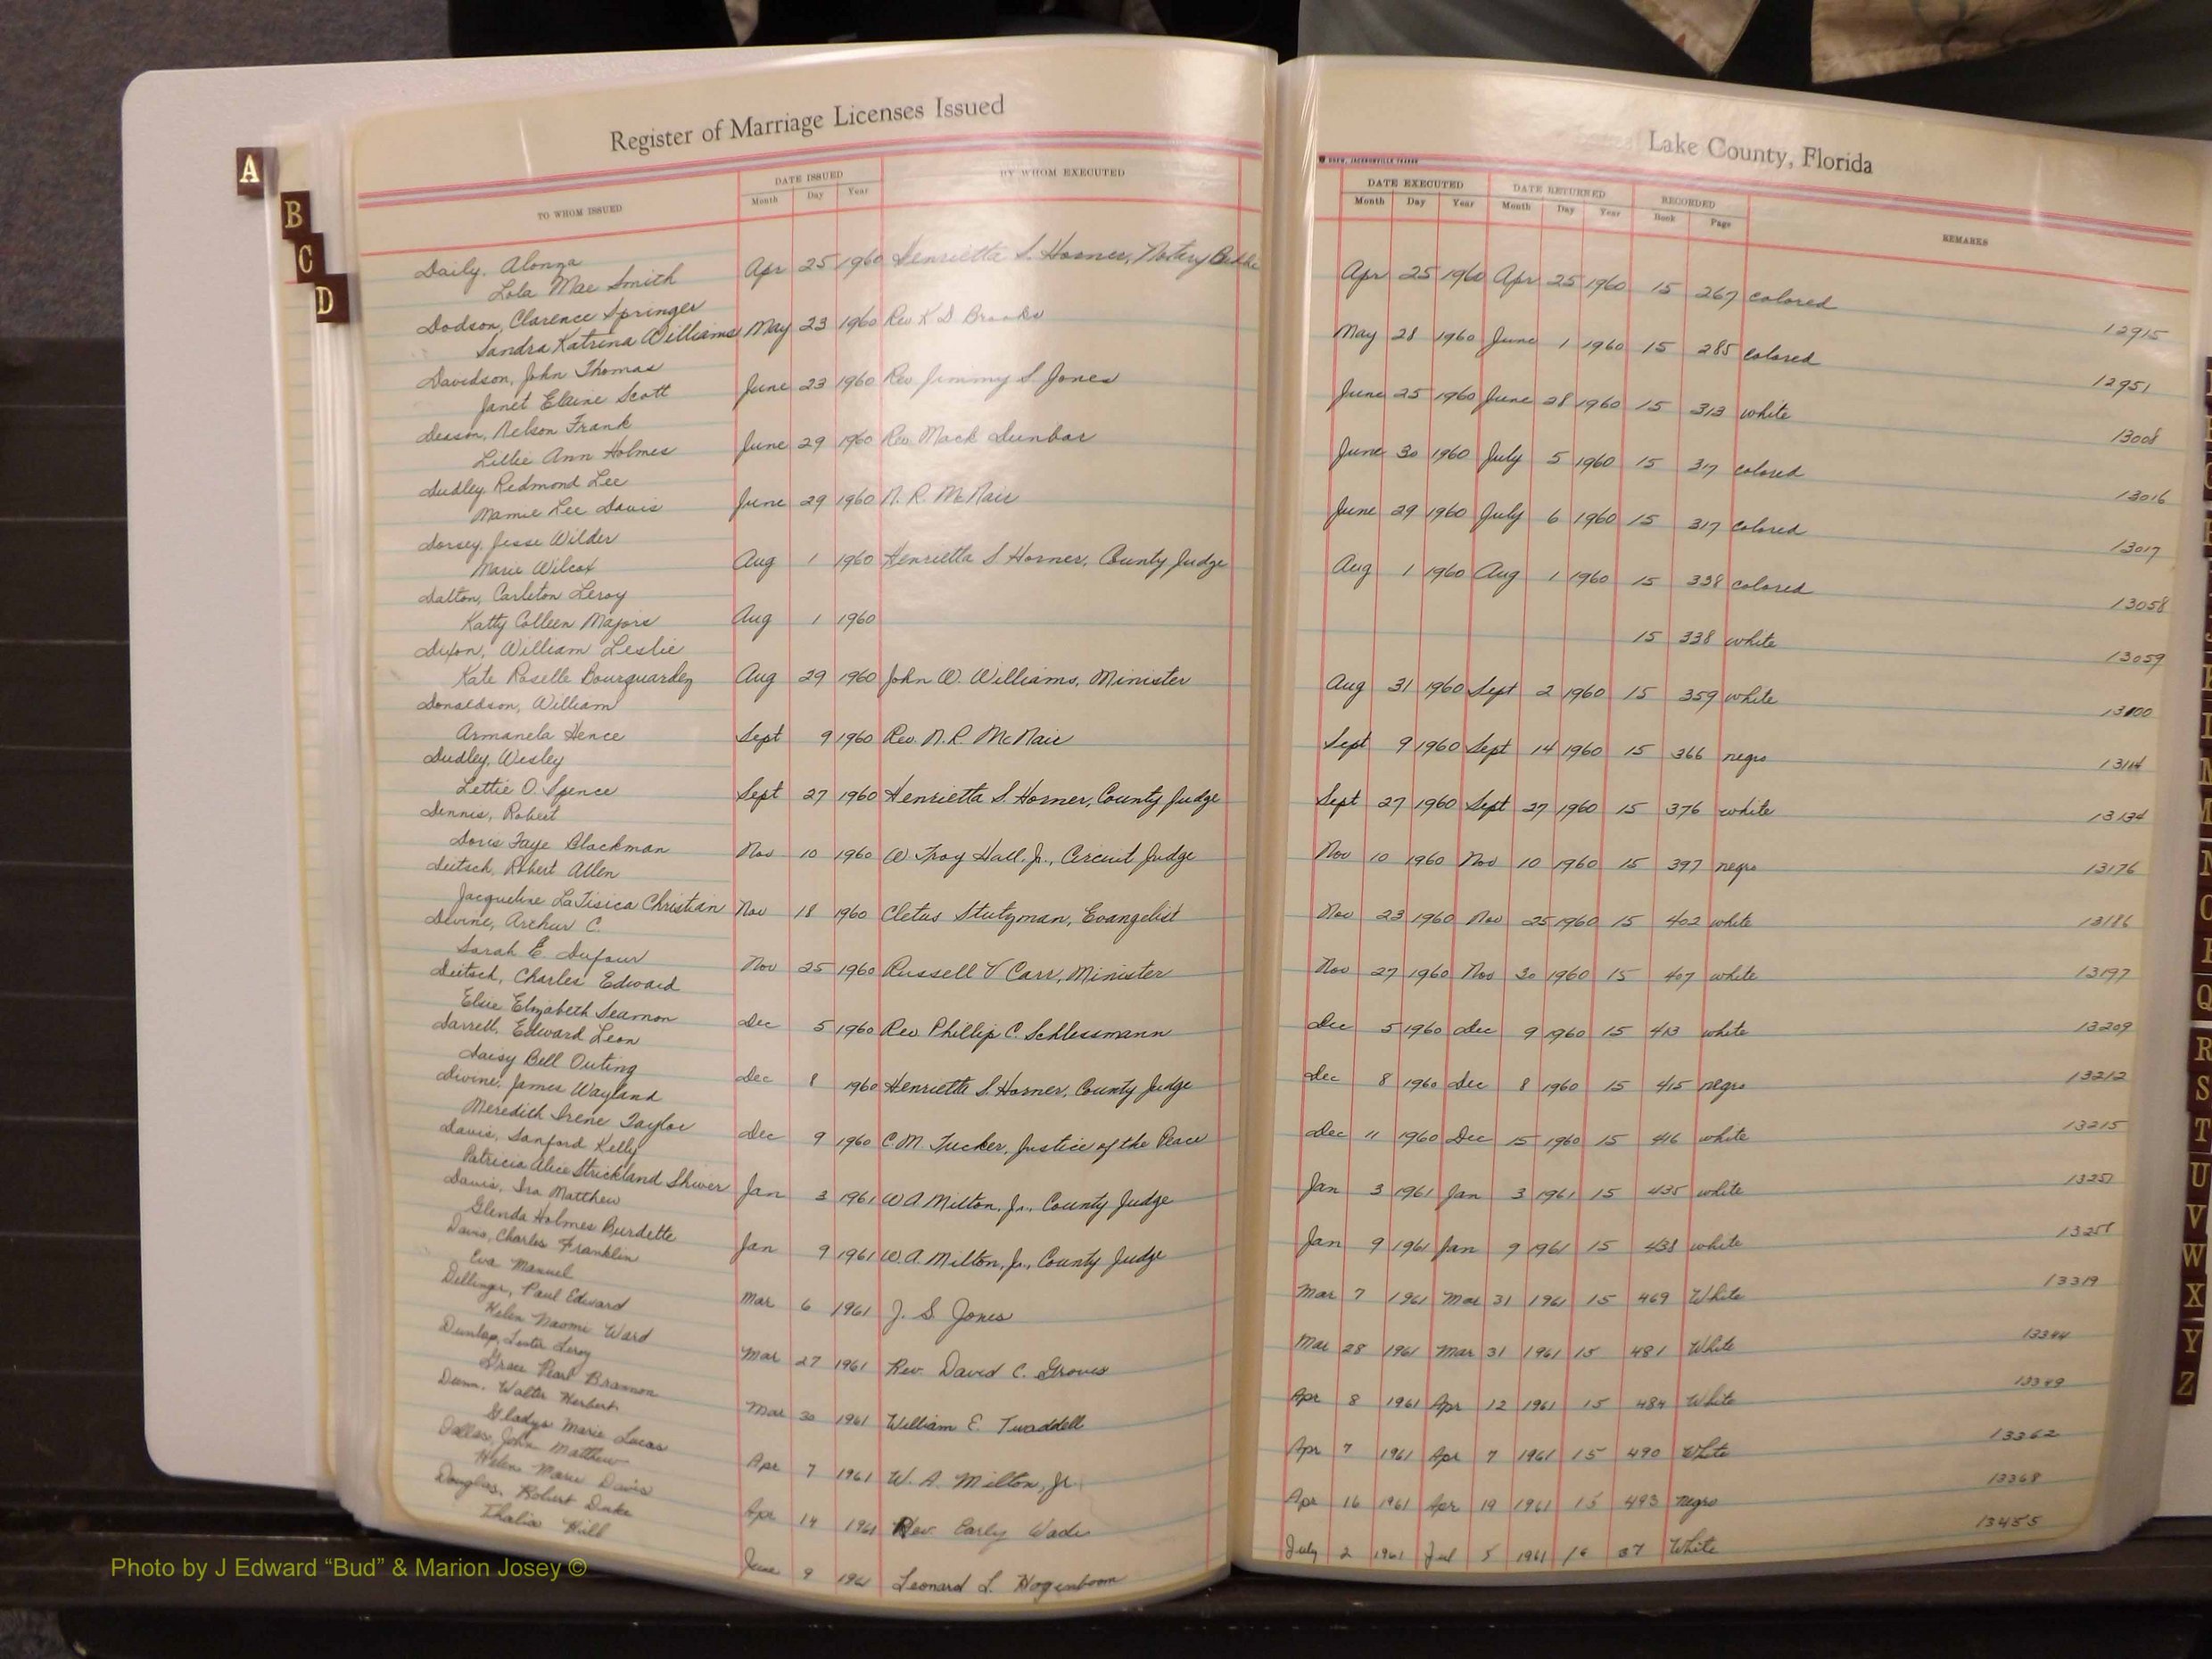 Register of Marriage Licenses Issued
Lake County, Florida
TO WHOM ISSUED
DATE ISSUED
Month Day Year
BY WHOM EXECUTED
DATE EXECUTED
Month Day Year
DATE RETURNED
Month Day Year
RECORDED
Book Page
REMARKS
A
B
C
D
Daily, Alonza
Lola Mae Smith Apr 25 1960 Henrietta S. Horner, Notery Apr 25 1960 Apr 25 1960 15 267 colored 12915
Dodson, Clarence Springer
Sandra Katrina Williams May 23 1960 Rev K D Brooks May 28 1960 June 1 1960 15 285 colored 12951
Davidson, John Thomas
Janet Elaine Scott June 23 1960 Rev. Jimmy S. Jones June 25 1960 June 28 1960 15 313 white 13008
Deason, Nelson Frank
Lillie Ann Holmes June 29 1960 Rev. Mack Dunbar June 30 1960 July 5 1960 15 317 colored 13016
Dudley, Redmond Lee
Mamie Lee Davis June 29 1960 N. R. McNair June 29 1960 July 6 1960 15 317 colored 13017
Dorsey, Jesse Wilder
Marie Wilcox Aug 1 1960 Henrietta S Horner, County Judge Aug 1 1960 Aug 1 1960 15 338 colored 13058
Dalton, Carleton Leroy
Katty Colleen Majors Aug 1 1960 15 338 white 13059
Dixon, William Leslie
Kate Roselle Bourguardez Aug 29 1960 John W. Williams, Minister Aug 31 1960 Sept 2 1960 15 359 white 13100
Donaldson, William
Armanela Hence Sept 9 1960 Rev. N. R. McNair Sept 9 1960 Sept 14 1960 15 366 negro 13114
Dudley, Wesley
Lettie O. Spence Sept 27 1960 Henrietta S. Horner, County Judge Sept 27 1960 Sept 27 1960 15 376 white 13134
Dennis, Robert
Doris Faye Blackman Nov 10 1960 W. Troy Hall, Jr., Circuit Judge Nov 10 1960 Nov 10 1960 15 397 negro 13176
Deitsch, Robert Allen
Jacqueline LaTisica Christian Nov 18 1960 Cletus Stutzman, Evangelist Nov 23 1960 Nov 25 1960 15 402 white 13186
Devine, Arthur C.
Sarah E. Dufour Nov 25 1960 Russell V Carr, Minister Nov 27 1960 Nov 30 1960 15 407 white 13197
Deitsch, Charles Edward
Elsie Elizabeth Seamon Dec 5 1960 Rev. Phillip C. Schlessmann Dec 5 1960 Dec 9 1960 15 413 white 13209
Darrell, Edward Leon
Daisy Bell Outing Dec 8 1960 Henrietta S. Horner, County Judge Dec 8 1960 Dec 8 1960 15 415 negro 13212
Divine, James Wayland
Meredith Irene Taylor Dec 9 1960 C. M. Tucker, Justice of the Peace Dec 11 1960 Dec 15 1960 15 416 white 13215
Davis, Sanford Kelly
Patricia Alice Strickland Shiver Jan 3 1961 W A Milton, Jr., County Judge Jan 3 1961 Jan 3 1961 15 435 white 13251
Davis, Ira Matthew
Glenda Holmes Burdette Jan 9 1961 W. A. Milton, Jr., County Judge Jan 9 1961 Jan 9 1961 15 438 white 13258
Davis, Charles Franklin
Eva Manuel Mar 6 1961 J. S. Jones Mar 7 1961 Mar 31 1961 15 469 White 13319
Dellinger, Paul Edward
Helen Naomi Ward Mar 27 1961 Rev. David C. Groves Mar 28 1961 Mar 31 1961 15 481 White 13344
Dunlap, Lester Leroy
Grace Pearl Brannon Mar 30 1961 William E. Twaddell Apr 8 1961 Apr 12 1961 15 484 White 13349
Dunn, Walter Herbert
Gladys Marie Lucas Apr 7 1961 W. A. Milton, Jr. Apr 7 1961 Apr 7 1961 15 490 White 13362
Dallas, John Matthew
Helen Marie Davis Apr 14 1961 Rev. Early Wade Apr 16 1961 Apr 19 1961 15 493 negro 13368
Douglas, Robert Duke
Thalia Hill June 9 1961 Leonard L. Hogenboom July 2 1961 Jul 5 1961 16 37 White 13455
Q
R
S
T
U
V
W
X
Y
Z
Photo by J Edward “Bud” & Marion Josey ©